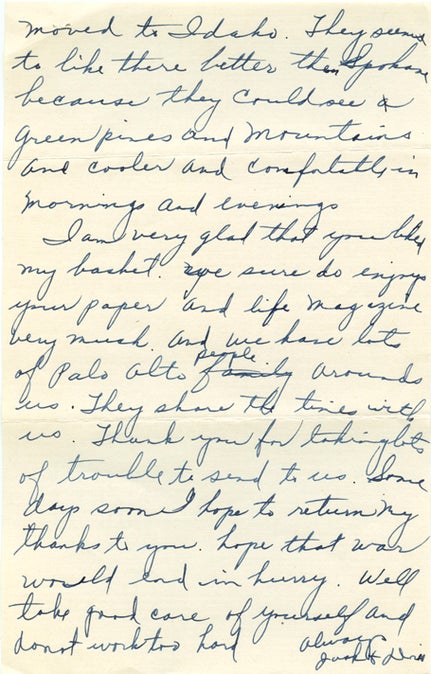 moved to Idaho. They seems
to like there better then Spokane
because they could see
green pines and mountains
and cooler and comfortable in
mornings and evenings
I am very glad that you liked
my basket. we sure do enjoys
your paper and life magazine
very much. And we have lots
of Palo Alto people family arounds
us. They share the times with
us. Thank you for taking lots
of trouble to send to us. Some
days soon I hope to return my
thanks to you. hope that war
would end in hurry. Well
take good care of yourself and
do not work too hard
always
Jack &